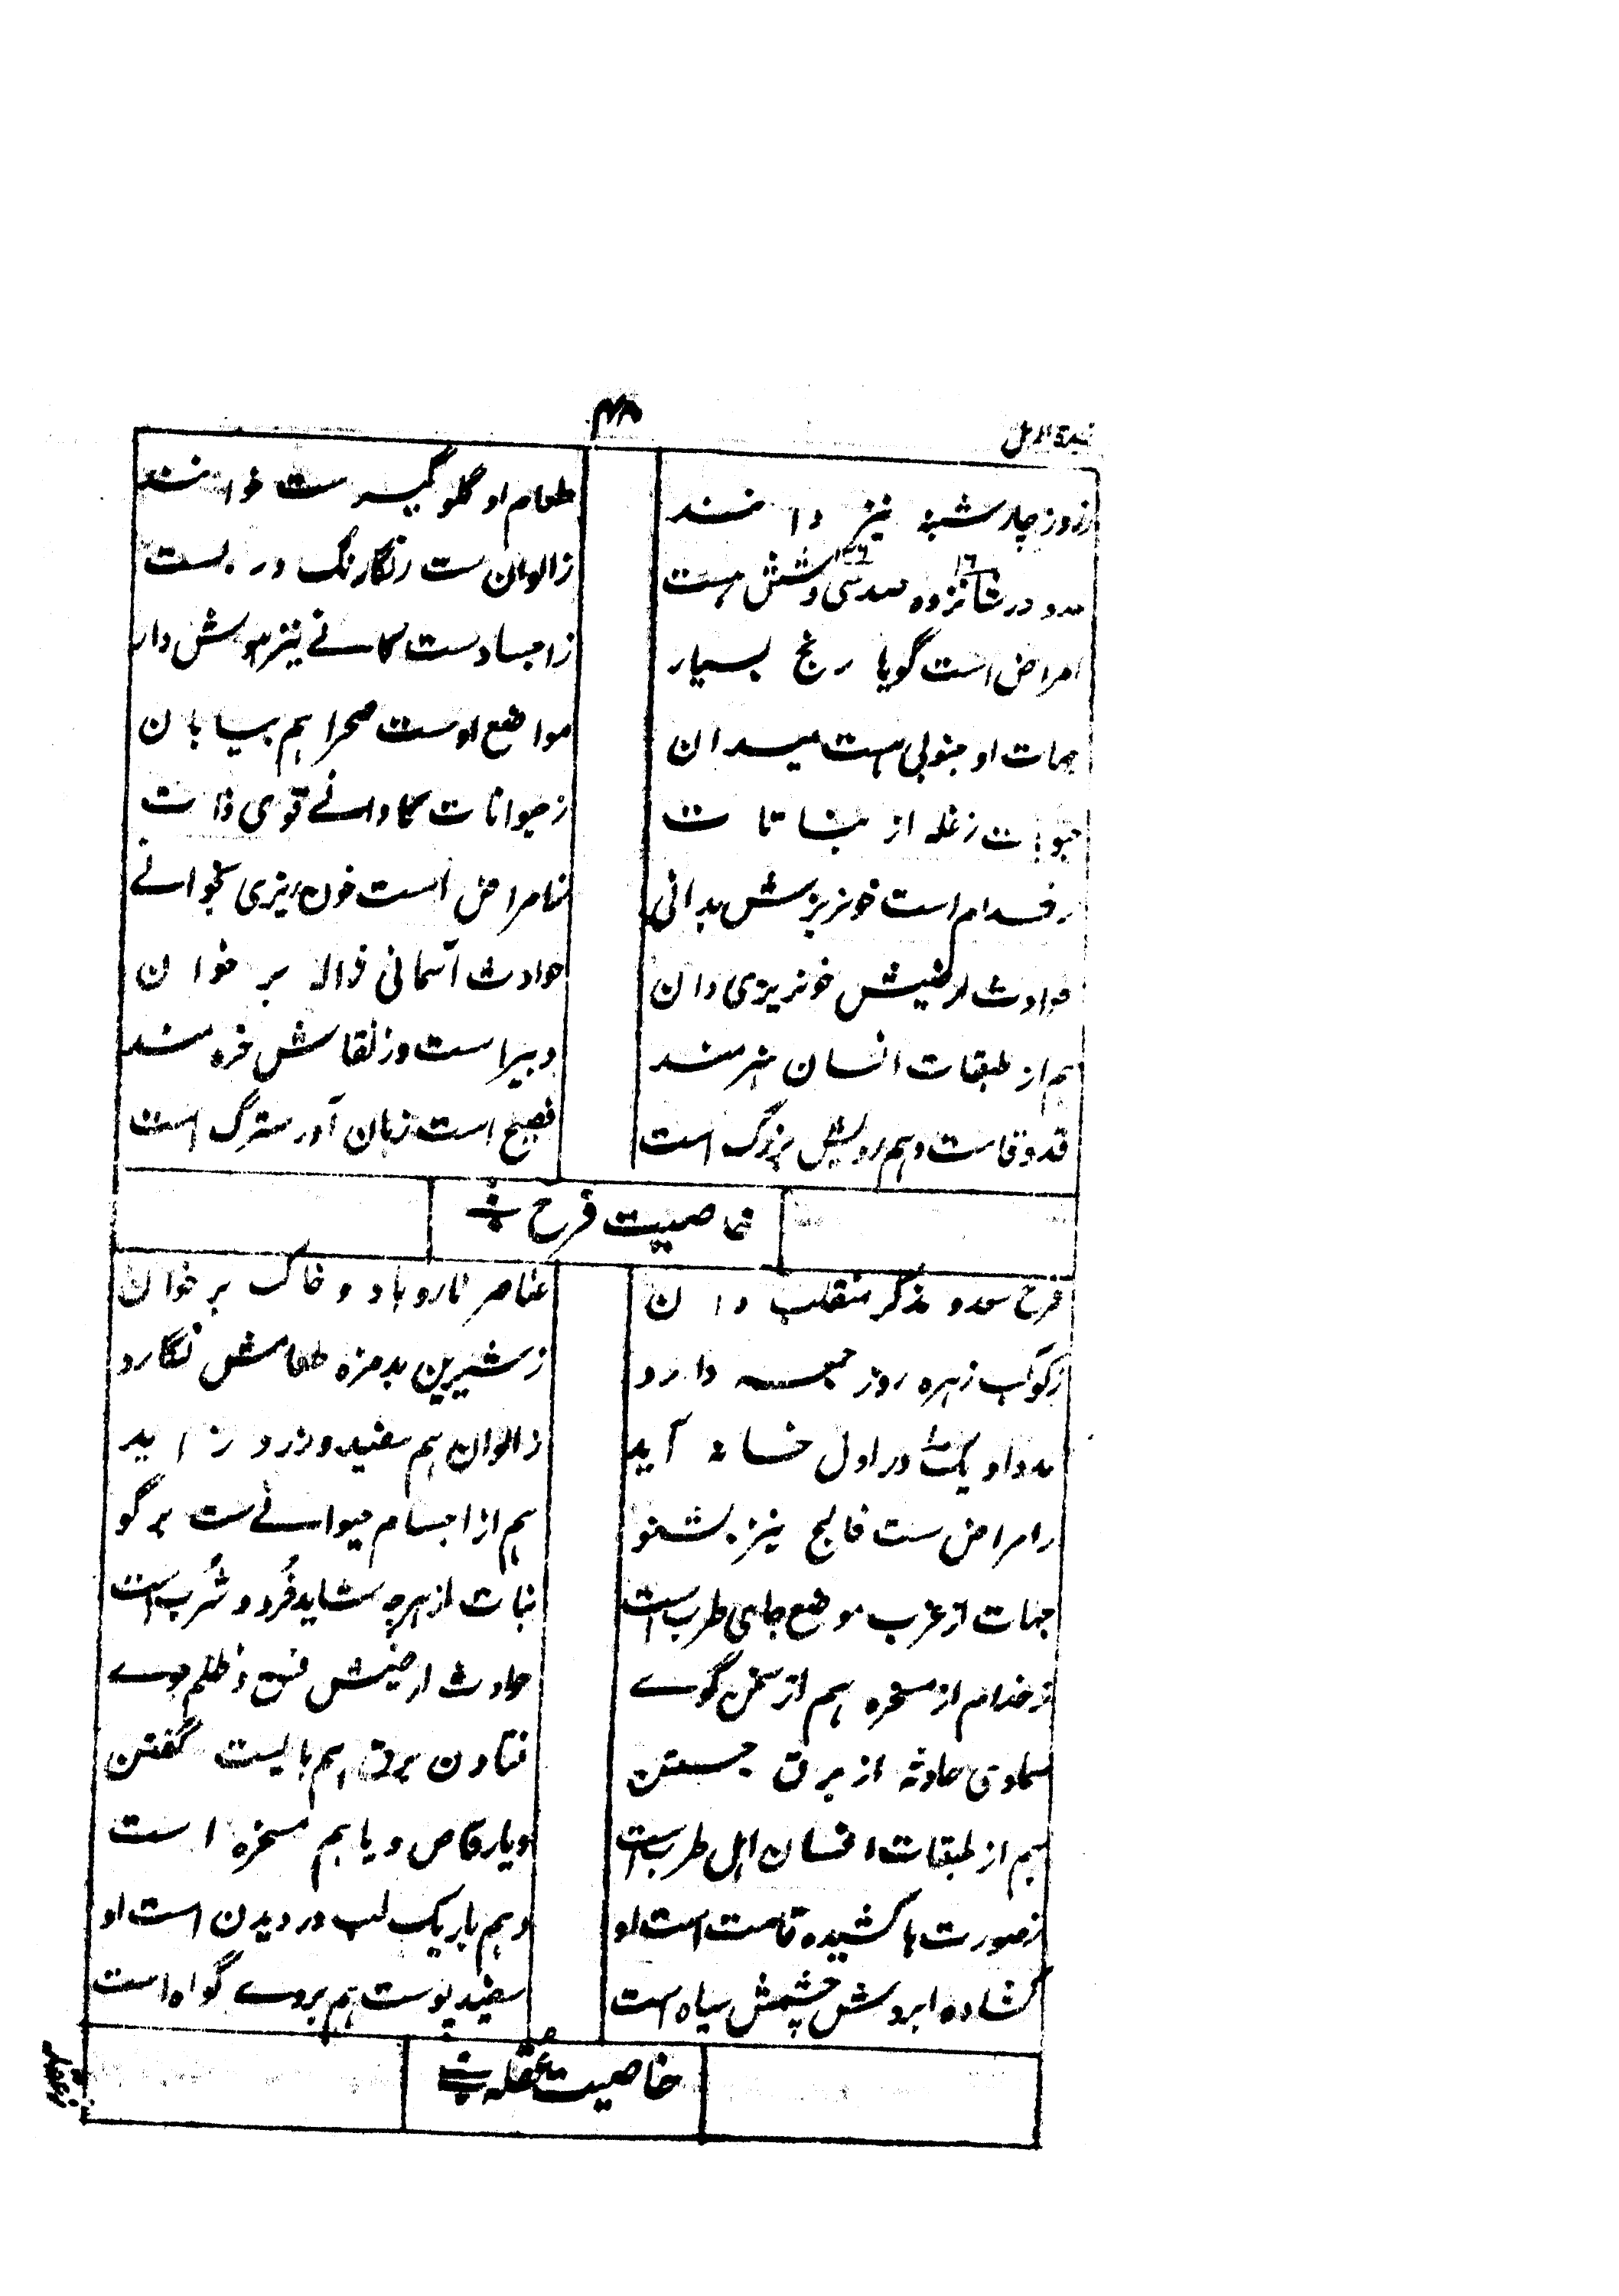 زبدة الرمل
۴۸
زروز چارشنبه نیز دانند
طعام او گلوگیرست خوانند
عدد در شانزده صدسی وشش هست
۱۶ ۱۳۶
زالوان ست رنگارنگ در بست
امراض است گویا رنج بسیار
زاجسادست کانے نیز هوش دار
جهات او جنوبی هست میدان
مواضع اوست صحرا هم بیابان
حبوبات زغله از نباتات
زحیوانات گاو دانے قوی ذات
زخدام است خونریزش بدانی
زامراض است خون ریزی بخوانے
حوادث ارضیش خونریزی دان
حوادث آسمانی ژاله بر خوان
هم از طبقات انسان هنرمند
دبیر است وزنقاش خردمند
قد وقامت وهم رویش بزرگ است
فصیح است زبان آور سترگ است
خاصیت فرح
فرح سعد و مذکر منقلب دان
عناصر نار و باد و خاک بر خوان
زکوکب زهره روز جمعه دارد
زشیرین بدمزه طعامش نگارد
عدد او یک در اول خانه آید
زالوان هم سفید و زرد زاید
زامراض ست فالج نیز بشنو
هم از اجسام حیوانے ست برگو
جهات از غرب موضع جای طرب است
نبات از هرچه شاید خُرد و شُرب است
زخدام از مسخره هم از سخن گوے
حوادث ارضیش فسق و ظلم جوے
سماوی حادثه از برق جستن
فتادن برق هم بایست گفتن
هم از طبقات انسان اهل طرب است
ویا رقاص ویا هم مسخره است
زصورت ها کشیده قامت است او
وهم باریک لب در دیدن است او
کشاده ابروش چشمش سیاه است
سفید پوست هم بروے گواه است
خاصیت عقله